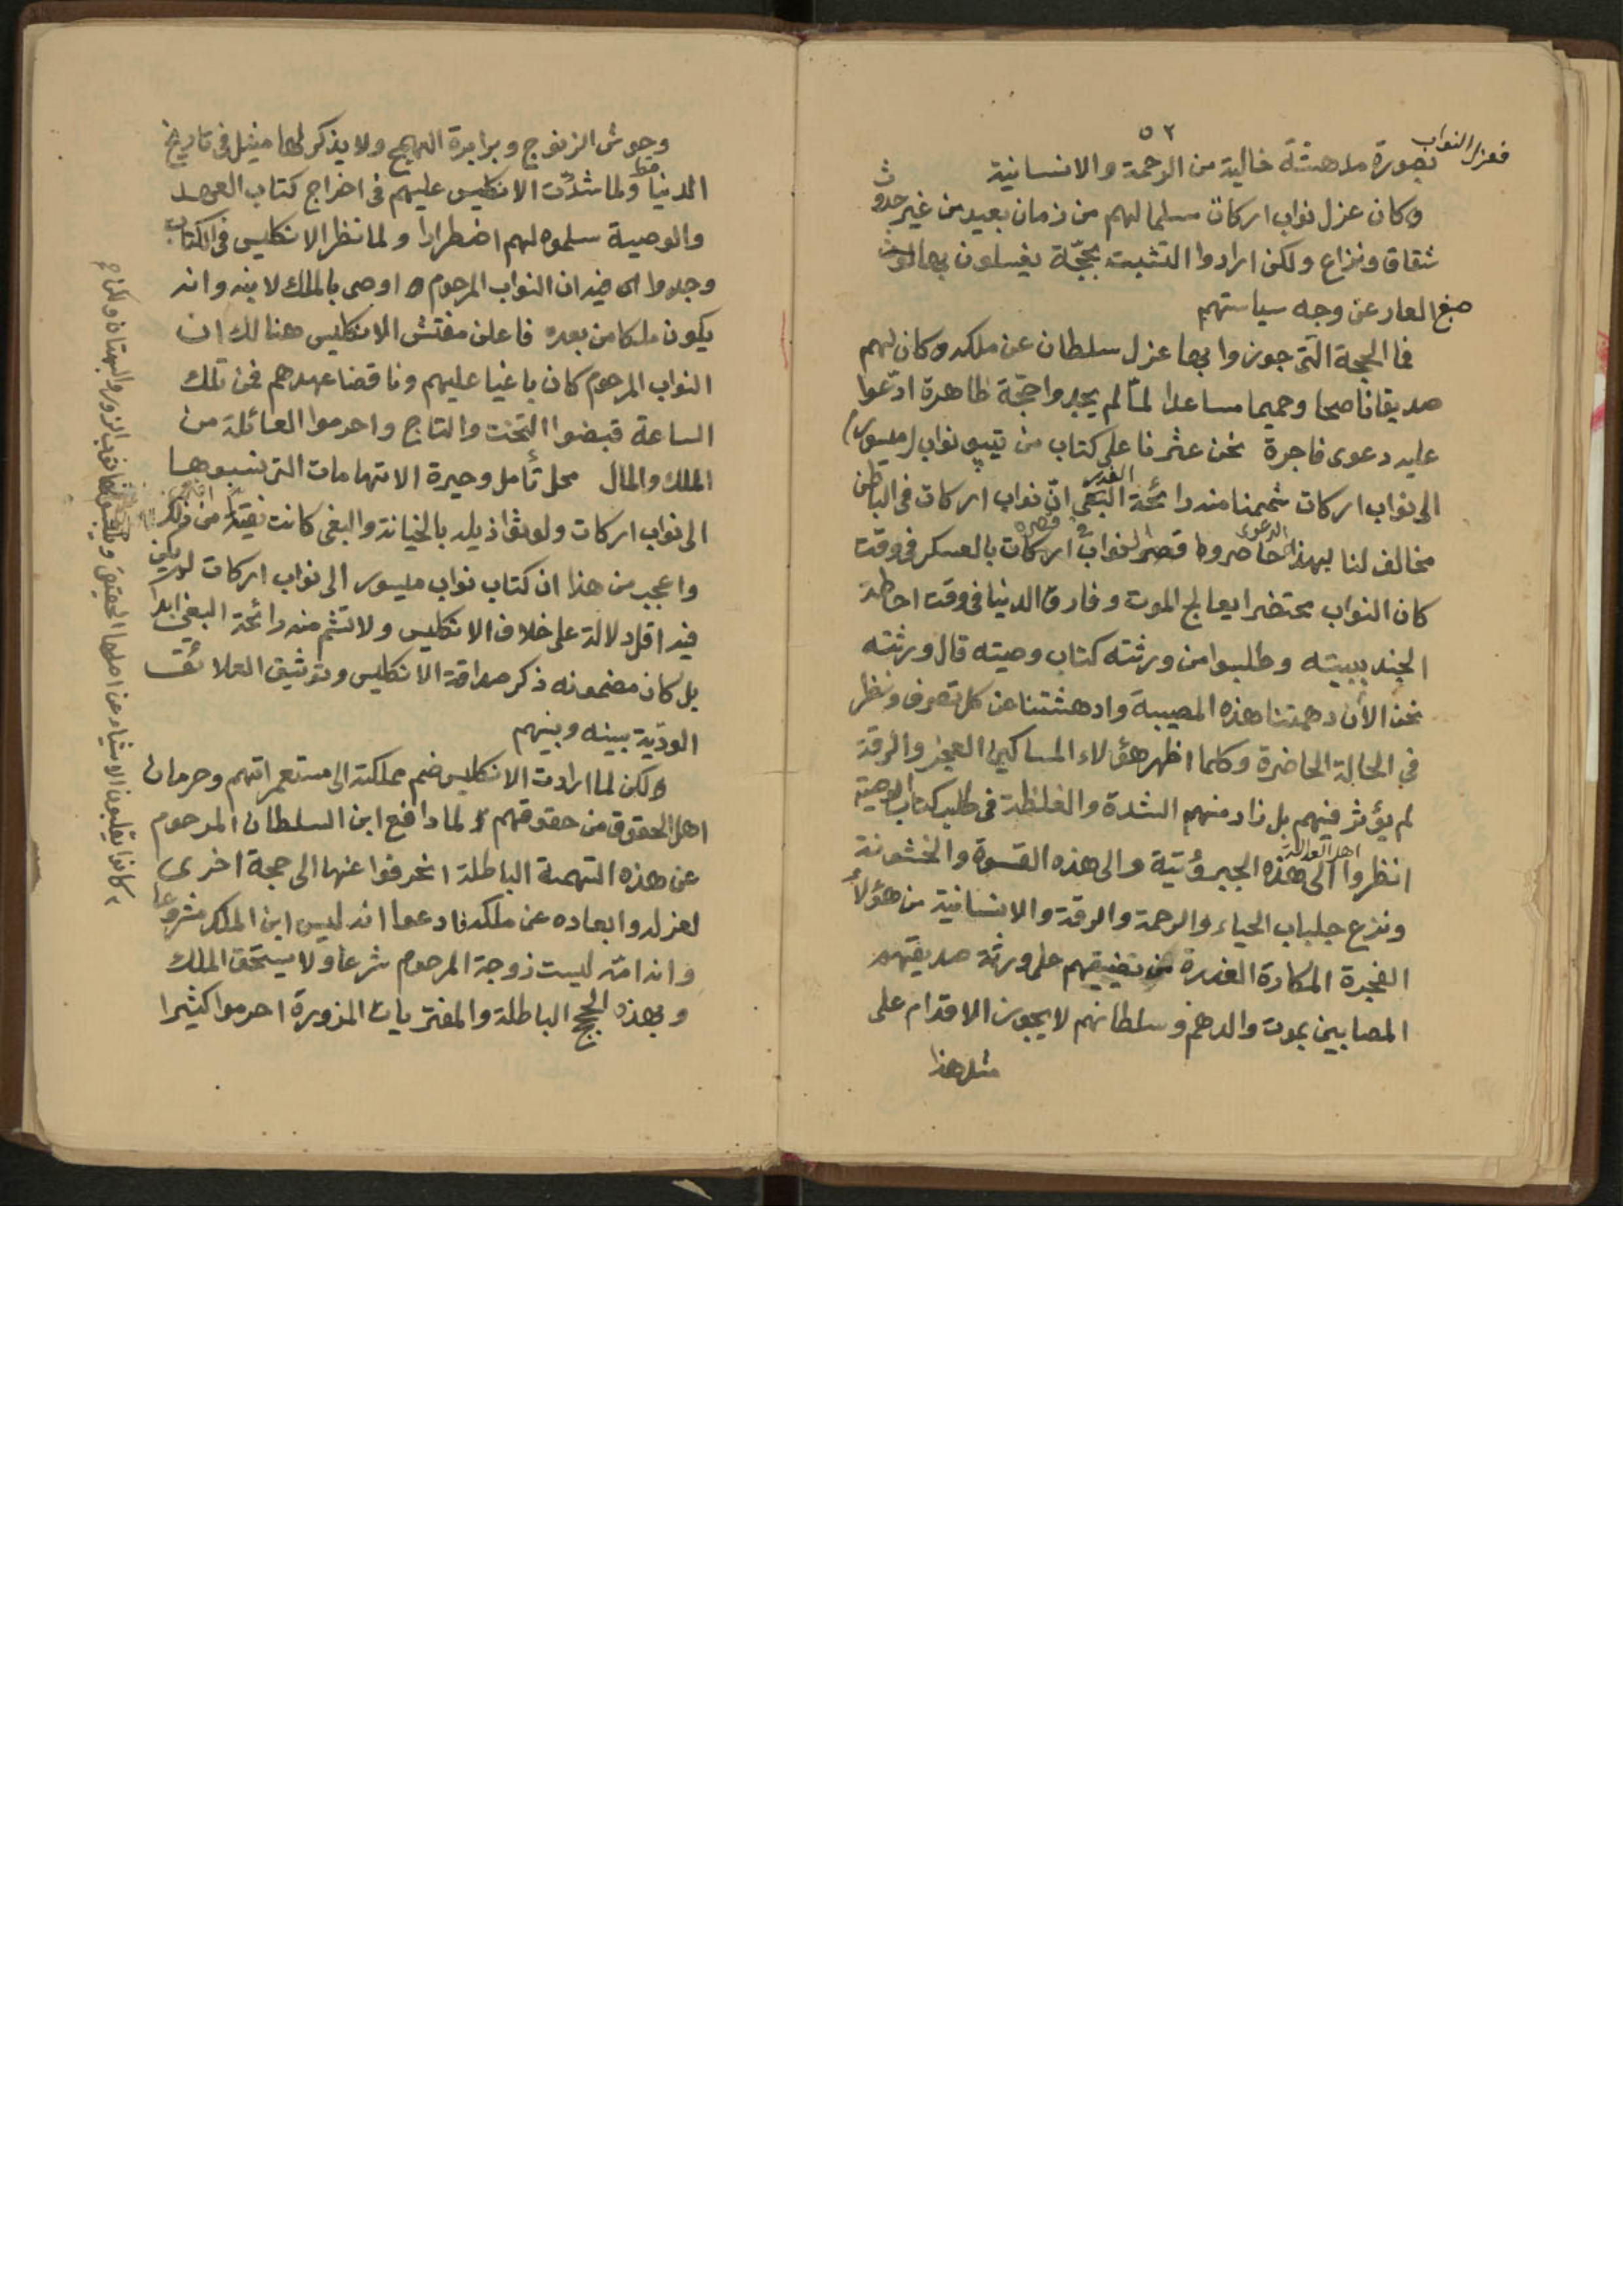 ٥٢
فعزل النواب
بصورة مدهشة خالية من الرحمة والانسانية
وكان عزل نواب اركات مسلما لهم من زمان بعيد من غير حدوث
شقاق ونزاع ولكن ارادوا التشبت بحجّة يغسلون بها لوث
صبغ العار عن وجه سياستهم
فما الحجة التى جوزوا بها عزل سلطان عن ملكه وكان لهم
صديقا ناصحا وحميما مساعدا لمّا لم يجدوا حجّة ظاهرة ادّعوا
عليه دعوى فاجرة نحن عثرنا على كتاب من تيپو نواب (ميسور)
الى نواب اركات شممنا منه رائحة الغدر البغى انّ نواب اركات فى الباطن
مخالف لنا بهذا الدعوى حاصروا قصر نواب اركات بالعسكر فى وقت
كان النواب محتضرا يعالج الموت وفارق الدنيا فى وقت احاطة
الجند ببيته وطلبوا من ورثته كتاب وصيته قال ورثته
نحن الآن دهمتنا هذه المصيبة وادهشتنا عن كل تصرف ونظر
في الحالة الحاضرة وكلما اظهر هؤلاء المساكين العجز والرقة
لم يؤثر فيهم بل زاد منهم الشدة والغلظة فى طلب كتاب الوصية
انظروا اهل العدالة الى هذه الجبروتية والى هذه القسوة والخشونة
ونزع جلباب الحياء والرحمة والرقة والانسانية من هؤلاء
الفجرة المكارة الغدرة تضييقهم على ورثة صديقهم
المصابين بموت والدهم وسلطانهم لا يجوز الاقدام على
مثل هذا
وحوش الزنوج وبرابرة الهمج ولا يذكر لها مثيل فى تاريخ
الدنيا قط ولما شدّت الانكليس عليهم فى اخراج كتاب العهد
والوصية سلموه لهم اضطرارا ولما نظر الانكليس فى الكتاب
وجدوا فيه ان النواب المرحوم اوصى بالملك لابنه وانه
يكون ملكا من بعده فاعلن مفتش الانكليس هنالك ان
النواب المرحوم كان باغيا عليهم وناقضا عهدهم فمن تلك
الساعة قبضوا التخت والتاج واحرموا العائلة من
الملك والمال محل تأمل وحيرة الاتهامات التى ينسبوها
الى نواب اركات ولوثوا ذيله بالخيانة والبغى كانت نقية من ذلك
واعجب من هذا ان كتاب نواب ميسور الى نواب اركات لم يكن
فيه اقل دلالة على خلاف الانكليس ولا تشم منه رائحة البغى ابدا
بل كان مضمونه ذكر صداقة الانكليس وتوثيق العلائق
الودّية بينه وبينهم
ولكن لما ارادت الانكليس ضم مملكته الى مستعمراتهم وحرمان
اهل الحقوق من حقوقهم ولما دافع ابن السلطان المرحوم
عن هذه التهمة الباطلة انحرفوا عنها الى حجة اخرى
لعزله وابعاده عن ملكه فادعوا انه ليس ابن الملك مشروعا
وانه امّه ليست زوجة المرحوم شرعا ولا يستحق الملك
وبهذه الحجج الباطلة والمفتريات المزورة احرموا كثيرا
كانوا يقلبون الاشياء عن اصلها الحقيقى الزور والبهتان